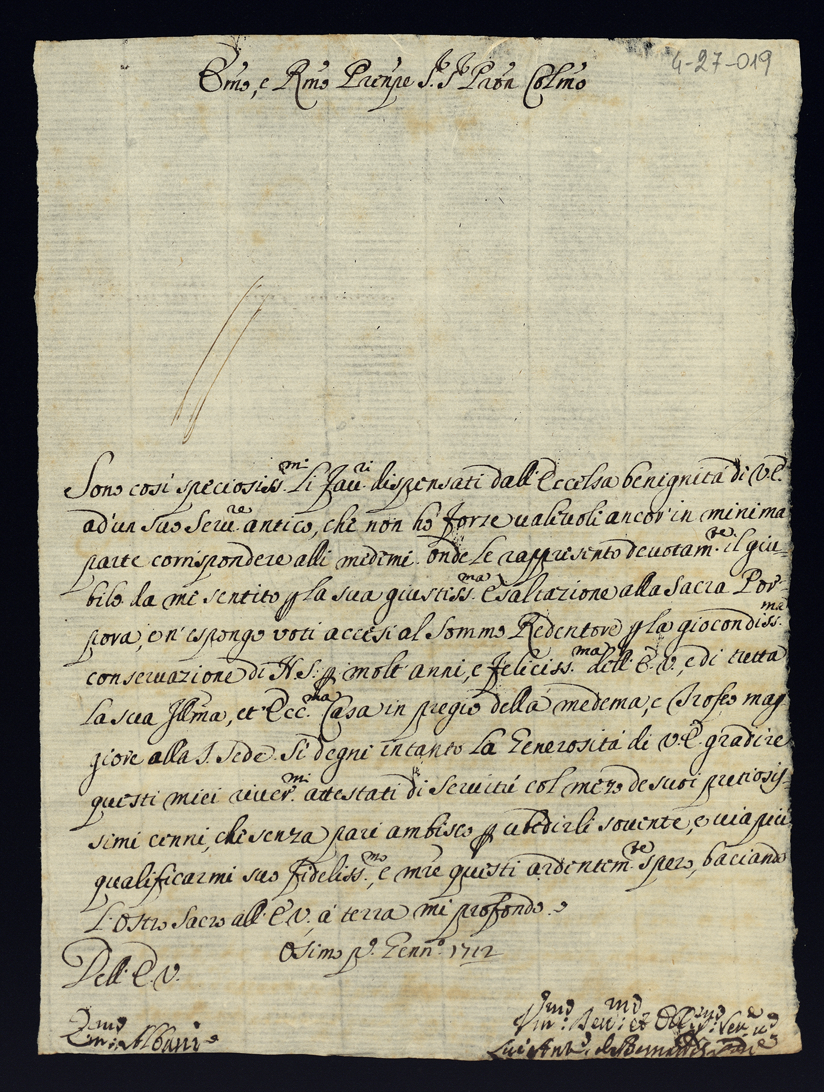 4-27-019
Emo, e Rmo Prenpe Sr. Sr Pron Colmo
Sono così speciosiss.mi li Fau.ri dispensati dall'Eccelsa benignità di V.E.
ad'un suo Seru.re antico, che non hò forze ualeuoli ancor'in minima
parte corrispondere alli medemi. onde le rappresento deuotam.te il giu-
bilo da me sentito p la sua giustiss.ma Esaltazione alla Sacra Por-
pora, e n'espongo voti accesi al Sommo Redentore p la giocondiss.ma
conseruazione di N.S: p molt'anni, e feliciss.ma dell'E.V., e di tutta
la sua Illma, et Ecc.ma Casa in pregio della medema, e Trofeo mag-
giore alla S. Sede. Si degni intanto la Generosità di V.E. gradire
questi miei riuer.mi attestati di Seruitù col mezo de suoi preciosis-
simi cenni, che senza pari ambisco p ubedirli souente, e uia più
qualificarmi suo fideliss.mo, e mre questi ardentem.te spero, baciando
l'Ostro Sacro all'E.V. à terra mi profondo.
Osimo po. Genn.o 1712
Dell'E.V.
Albani